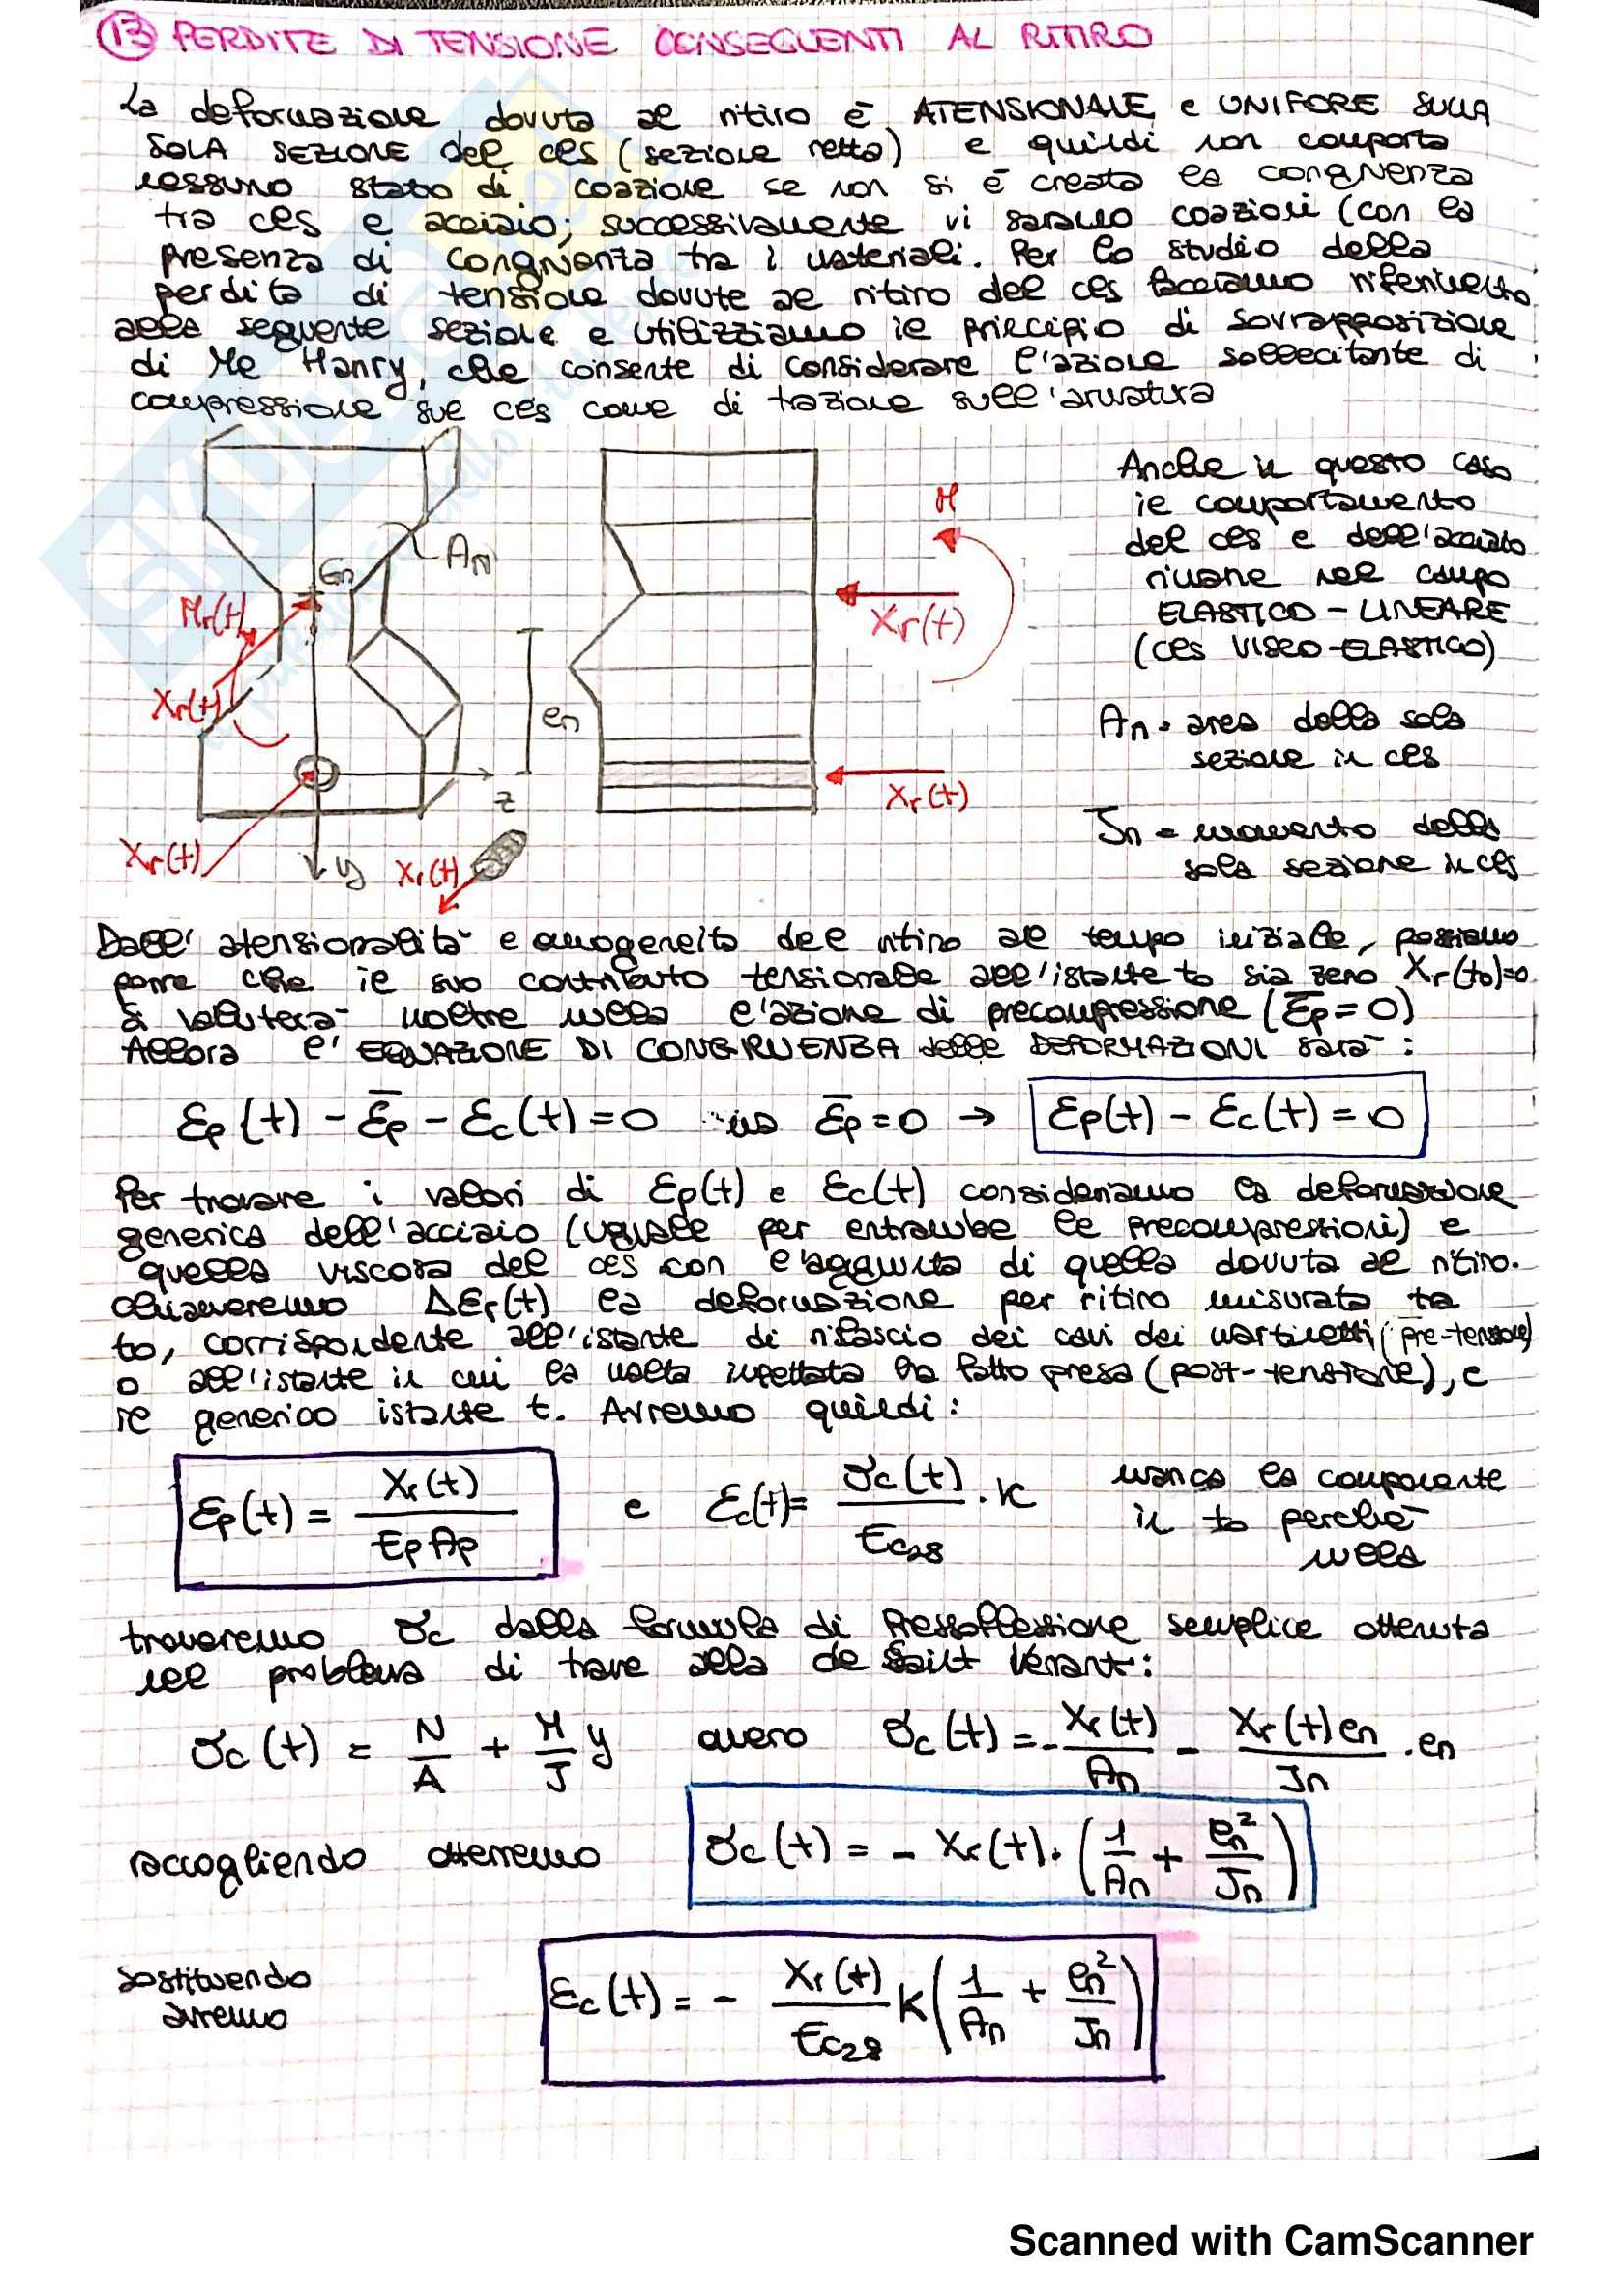 13 PERDITE DI TENSIONE CONSEGUENTI AL RITIRO
La deformazione dovuta al ritiro è ATENSIONALE e UNIFORE SULLA
SOLA SEZIONE del cls (sezione retta) e quindi non comporta
nessuno stato di coazione se non si è creata la congruenza
tra cls e acciaio; successivamente vi saranno coazioni (con la
presenza di congruenza tra i materiali. Per lo studio della
perdita di tensione dovute al ritiro del cls facciamo riferimento
alla seguente sezione e utilizziamo il principio di sovrapposizione
di Mc Hanry, che consente di considerare l'azione sollecitante di
compressione sul cls come di trazione sull'armatura
Anche in questo caso
il comportamento
del cls e dell'acciaio
rimane nel campo
ELASTICO - LINEARE
(cls VISCO-ELASTICO)
An = area della sola
sezione in cls
Jn = momento della
sola sezione in cls
Gn
An
Mr(t)
Xr(t)
Xr(t)
z
y
Xr(t)
en
M
Xr(t)
Xr(t)
Dall'atensionalità e omogeneità del ritiro al tempo iniziale, possiamo
porre che il suo contributo tensionale all'istante to sia zero Xr(to)=0
Si valuterà inoltre nulla l'azione di precompressione (ε̅p = 0)
Allora l'EQUAZIONE DI CONGRUENZA delle DEFORMAZIONI sarà:
εp(t) - ε̅p - εc(t) = 0 ε̅p = 0 → εp(t) - εc(t) = 0
Per trovare i valori di εp(t) e εc(t) consideriamo la deformazione
generica dell'acciaio (uguale per entrambe le precompressioni) e
quella viscosa del cls con l'aggiunta di quella dovuta al ritiro.
chiameremo Δεr(t) la deformazione per ritiro misurata tra
to, corrispondente all'istante di rilascio dei cavi dei martinetti (pre-tensione)
o all'istante in cui la malta iniettata ha fatto presa (post-tensione), e
il generico istante t. Avremo quindi:
εp(t) = Xr(t) / EpAp e εc(t) = σc(t) / Ec28 · K manca la componente
in to perché
nulla
troveremo σc dalla formula di Pressoflessione semplice ottenuta
nel problema di trave alla de Saint Venant:
σc(t) = N/A + M/J y ovvero σc(t) = - Xr(t)/An - Xr(t)en/Jn · en
raccogliendo otterremo σc(t) = - Xr(t) · (1/An + en²/Jn)
sostituendo
avremo
εc(t) = - Xr(t)/Ec28 K (1/An + en²/Jn)
Scanned with CamScanner